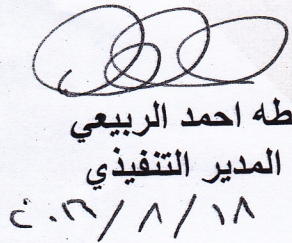 طه احمد الربيعي
المدير التنفيذي
١٨ / ٨ / ٢٠١٦